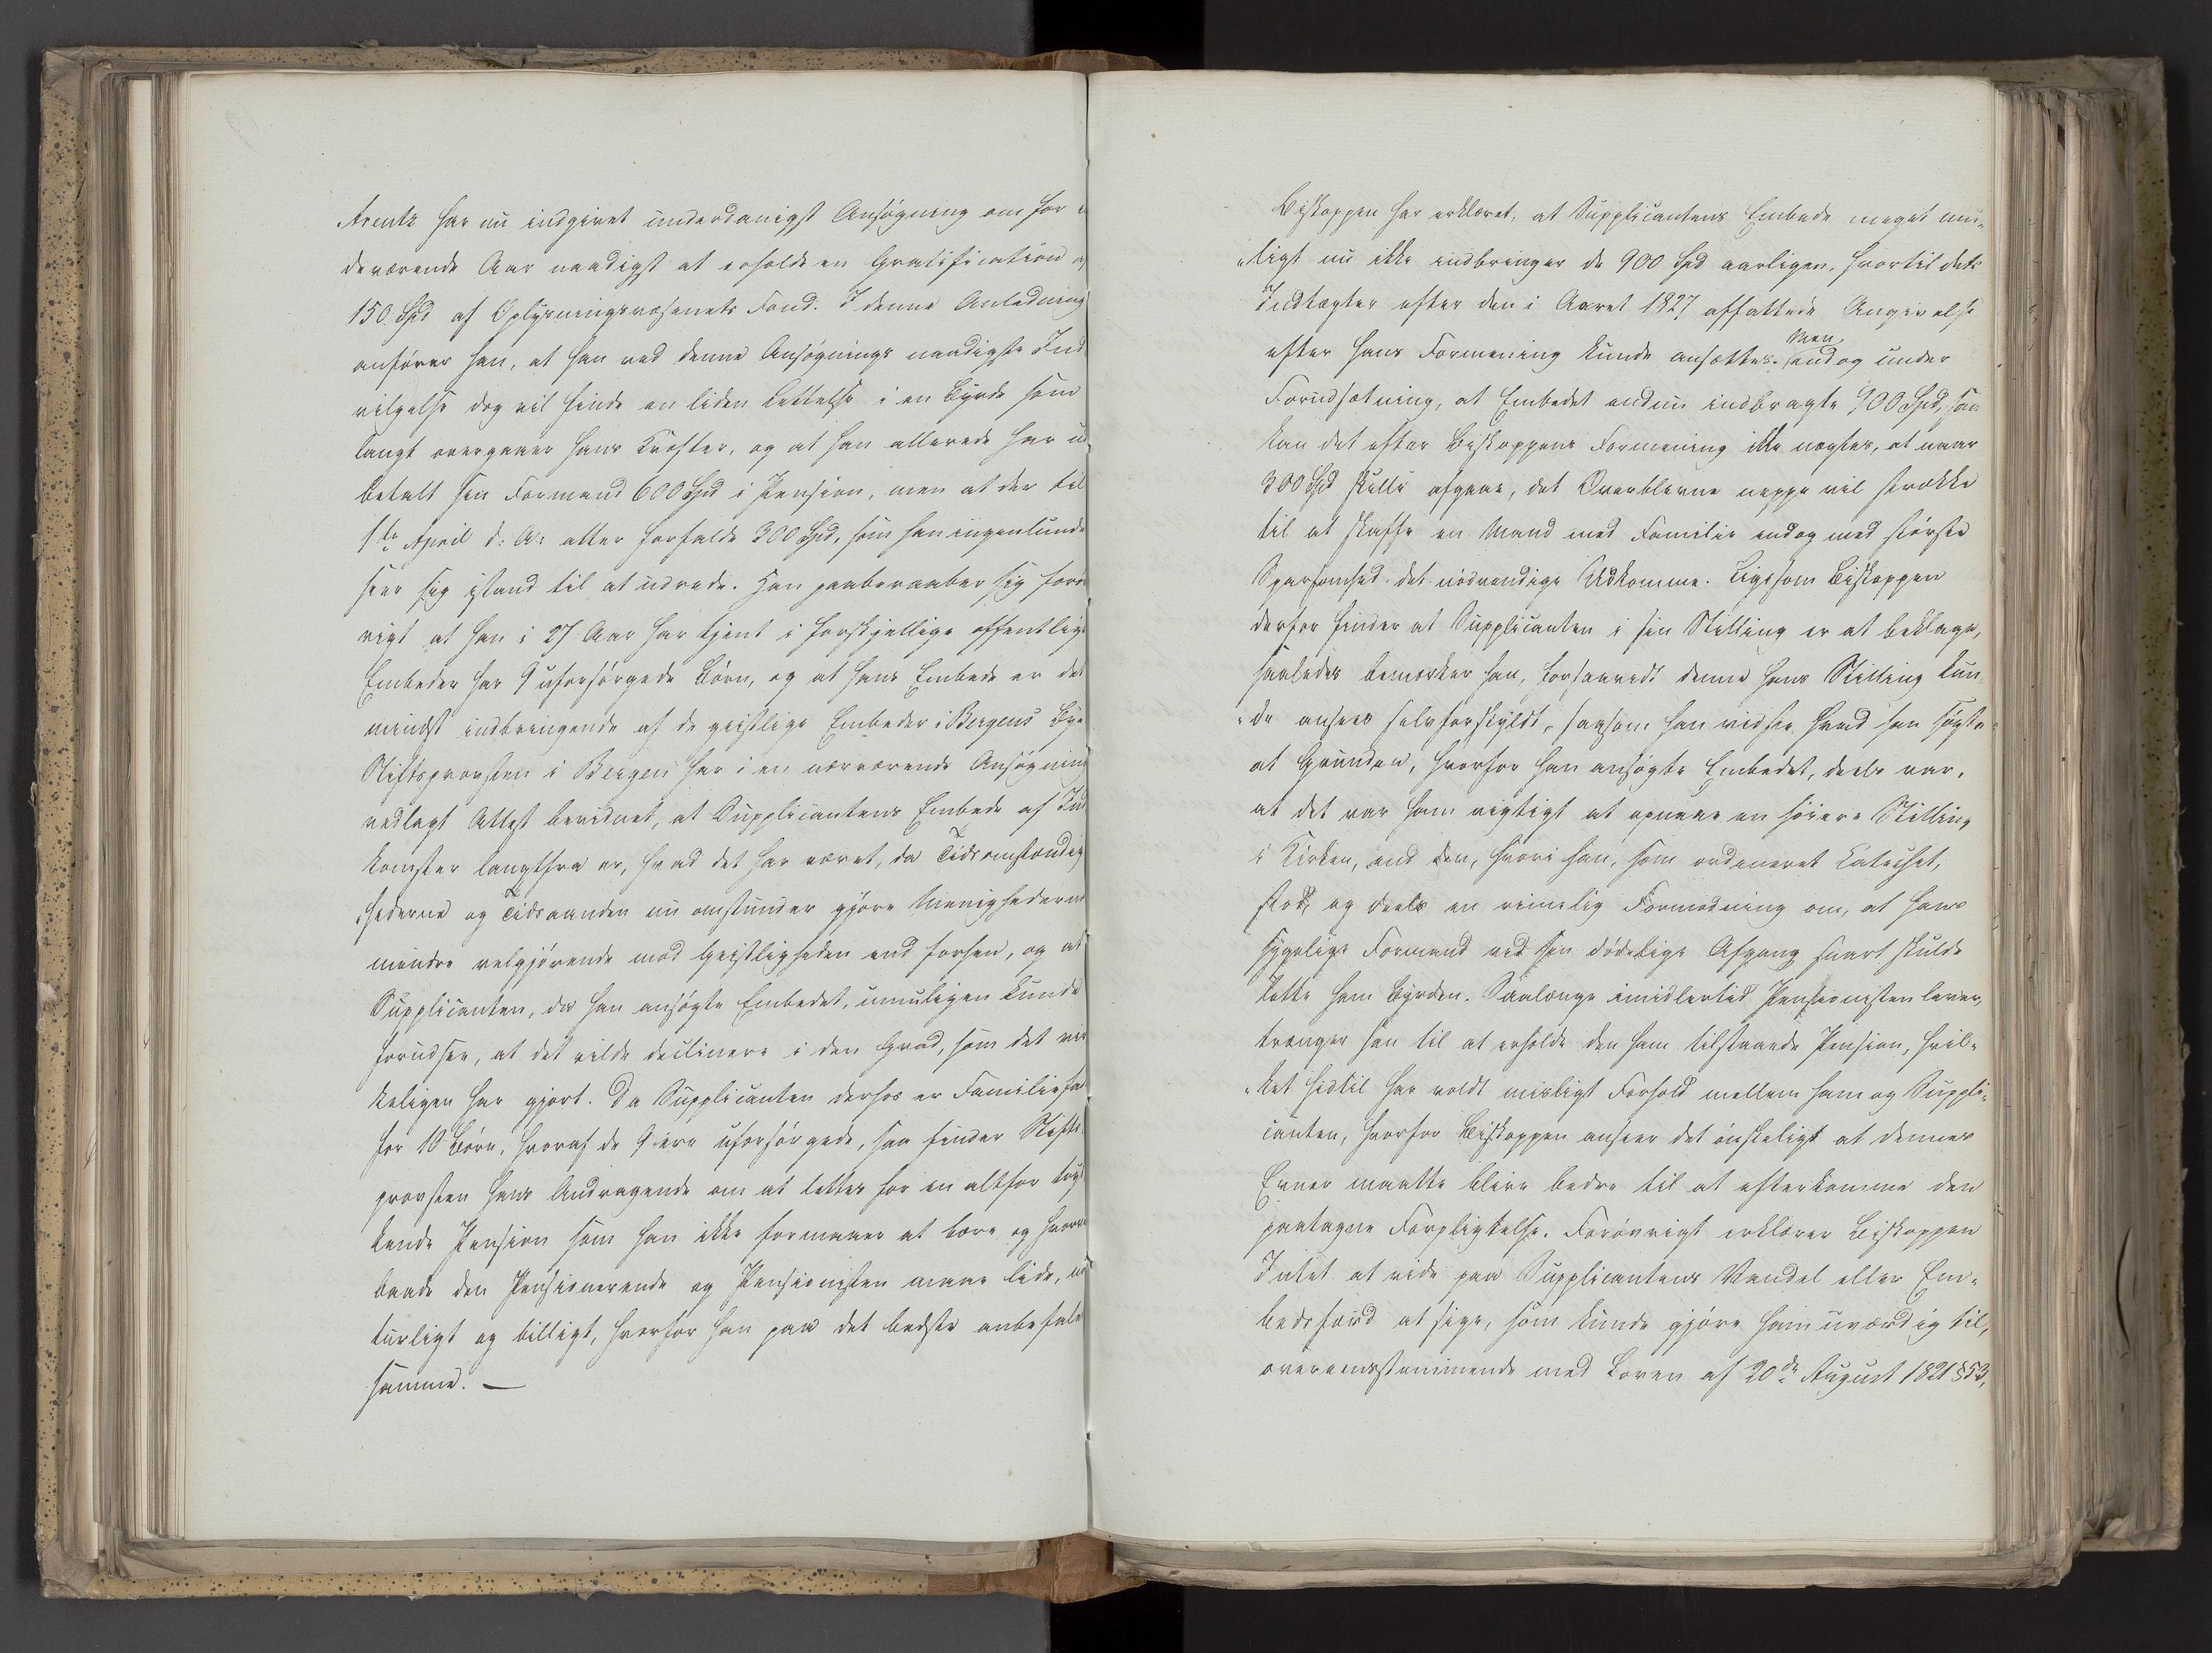 Arentz har nu indgivet underdanigst Ansøgning om for
deværende Aar naadigst at erholde en Gratification
150 Spd af Oplysningsvæsenets Fond. I denne Anledning
anfører han, at han ved denne Ansøgnings naadigste Ind
vilgelse dog vil finde en liden Lettelse i en Byrde som
langt overgaaer hans Kræfter, og at han allerede har
betalt sin Formand 600 Spd i Pension, men at der til
1ste April d: A: atter forfalde 300 Spd, som han ingenlunde
seer sig istand til at udrede. Han paaberaaber sig forø
vrigt at han i 27 Aar har tjent i forskjellige offentlige
Embeder har 9 uforsørgede Børn, og at hans Embede er det
mindst indbringende af de geistlige Embeder i Bergens Bye
Stiftsprovsten i Bergen har i en nærværende Ansøgning
vedlagt Attest bevidnet, at Supplicantens Embede af Ind
komster langtfra er, hvad det har været, da Tidsomstændig
hederne og Tidsaanden nu omstunder gjøre Menighederne
mindre velgjørende mod Geistligheden end forhen, og at
Supplicanten, da han ansøgte Embedet, umuligen kunde
forudsee, at det vilde declinere i den Grad, som det vir
keligen har gjort. Da Supplicanten derhos er Familiefa
for 10 Børn, hvoraf de 9 ere uforsørgede, saa finder Stifts
provsten hans Andragende om at lettes for en altfor tryk
kende Pension som han ikke formaaer at bære og hvorved
baade den Pensionerende og Pensionisten maae lide, na
turligt og billigt, hvorfor han paa det bedste anbefaler
samme. —
Biskoppen har erklæret, at Supplicantens Embede meget mu-
"ligt nu ikke indbringer de 900 Spd aarligen, hvortil dets
Indtægter efter den i Aaret 1827 affattede Angivelse
efter hans Formening kunde ansættes. Men, endog under
Forudsætning, at Embedet endnu indbragte 900 Spd, saa
kan det efter Biskoppens Formening ikke nægtes, at naar
300 Spd skulle afgaae, det Overblevne neppe vil strække
til at skaffe en Mand med Familie endog med største
Sparsomhed det nødvendige Udkomme. Ligesom Biskoppen
derfor finder at Supplicanten i sin Stilling er at beklage,
saaledes bemærker han, forsaavidt denne hans Stilling kun
"de ansees selvforskyldt, saasom han vidste hvad han søgte
at Grunden, hvorfor han ansøgte Embedet, deels var,
at det var ham vigtigt at opnaae en høiere Stilling
i Kirken, end den, hvori han, som ordineret Catechet,
stod, og deels en rimelig Formodning om, at hans
sygelige Formand ved sin dødelige Afgang snart skulde
lette ham Byrden. Saalænge imidlertid Pensionisten lever,
trænger han til at erholde den ham tilstaaede Pension, hvil-
"ket hidtil har voldt misligt Forhold mellem ham og Suppli-
canten, hvorfor Biskoppen anseer det ønskeligt at dennes
Evner maatte blive bedre til at efterkomme den
paatagne Forpligtelse. Forøvrigt erklærer Biskoppen
Intet at vide paa Supplicantens Vandel eller Em-
bedsfærd at sige, som kunde gjøre ham uværdig til,
overensstemmende med Loven af 20de August 1821 § 53,